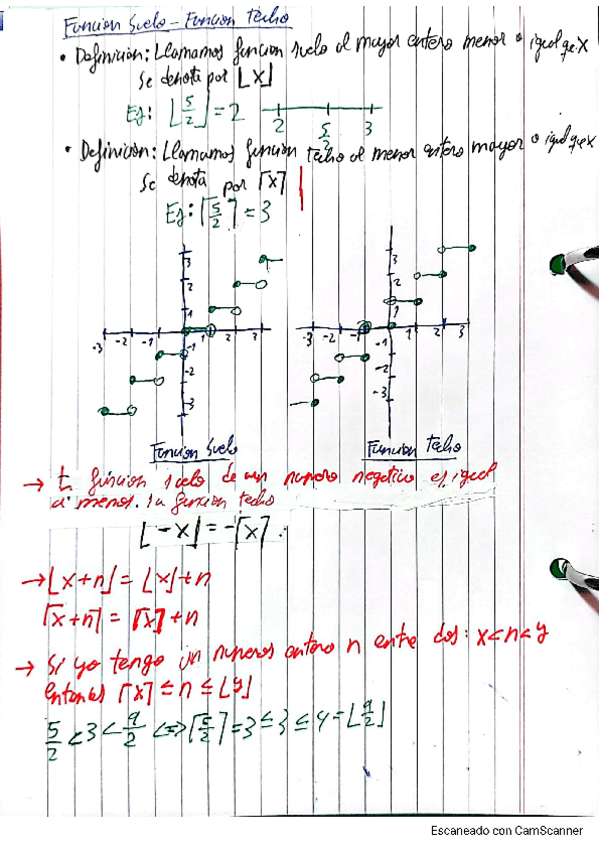 Función Suelo - Función Techo
• Definición: Llamamos función suelo al mayor entero menor o igual que x
Se denota por ⌊x⌋
Ej: ⌊5/2⌋ = 2
2 5/2 3
• Definición: Llamamos función techo al menor entero mayor o igual que x
Se denota por ⌈x⌉
Ej: ⌈5/2⌉ = 3
3 2 1 -3 -2 -1 1 2 3 -1 -2 -3
3 2 1 -3 -2 -1 1 2 3 -1 -2 -3
Función Suelo
Función Techo
→ función suelo de un numero negativo es igual
a menos su función techo
⌊-x⌋ = -⌈x⌉.
→ ⌊x+n⌋ = ⌊x⌋+n
⌈x+n⌉ = ⌈x⌉+n
→ Si yo tengo un numeros entero n entre dos: x<n<y
entonces ⌈x⌉ ≤ n ≤ ⌊y⌋
5/2 < 3 < 9/2 <=> ⌈5/2⌉ = 3 ≤ 3 ≤ 4 = ⌊9/2⌋
Escaneado con CamScanner